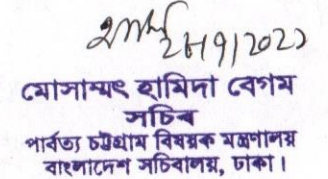 28/9/2022
মোসাম্মৎ হামিদা বেগম
সচিব
পার্বত্য চট্টগ্রাম বিষয়ক মন্ত্রণালয়
বাংলাদেশ সচিবালয়, ঢাকা।